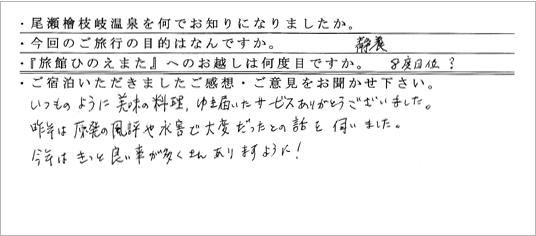 ・尾瀬檜枝岐温泉を何でお知りになりましたか。
・今回のご旅行の目的はなんですか。 静養
・『旅館ひのえまた』へのお越しは何度目ですか。 8度目位?
・ご宿泊いただきましたご感想・ご意見をお聞かせ下さい。
いつものように美味の料理、ゆき届いたサービスありがとうございました。
昨年は原発の風評や水害で大変だったとの話を伺いました。
今年はきっと良い事が多くさんありますように!